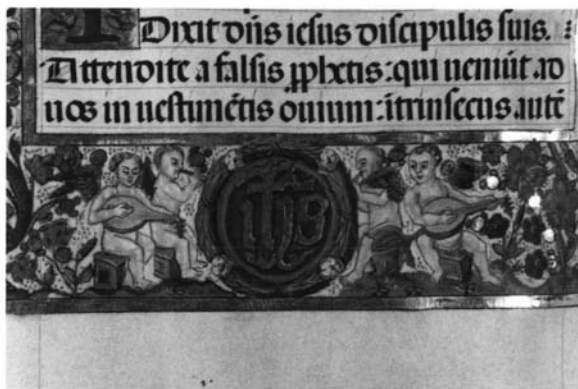 Dixit dñs iesus discipulis suis. :
Attendite a falsis ꝓphetis: qui ueniūt ad
uos in uestimētis ouium: ītrinsecus autē
ihs